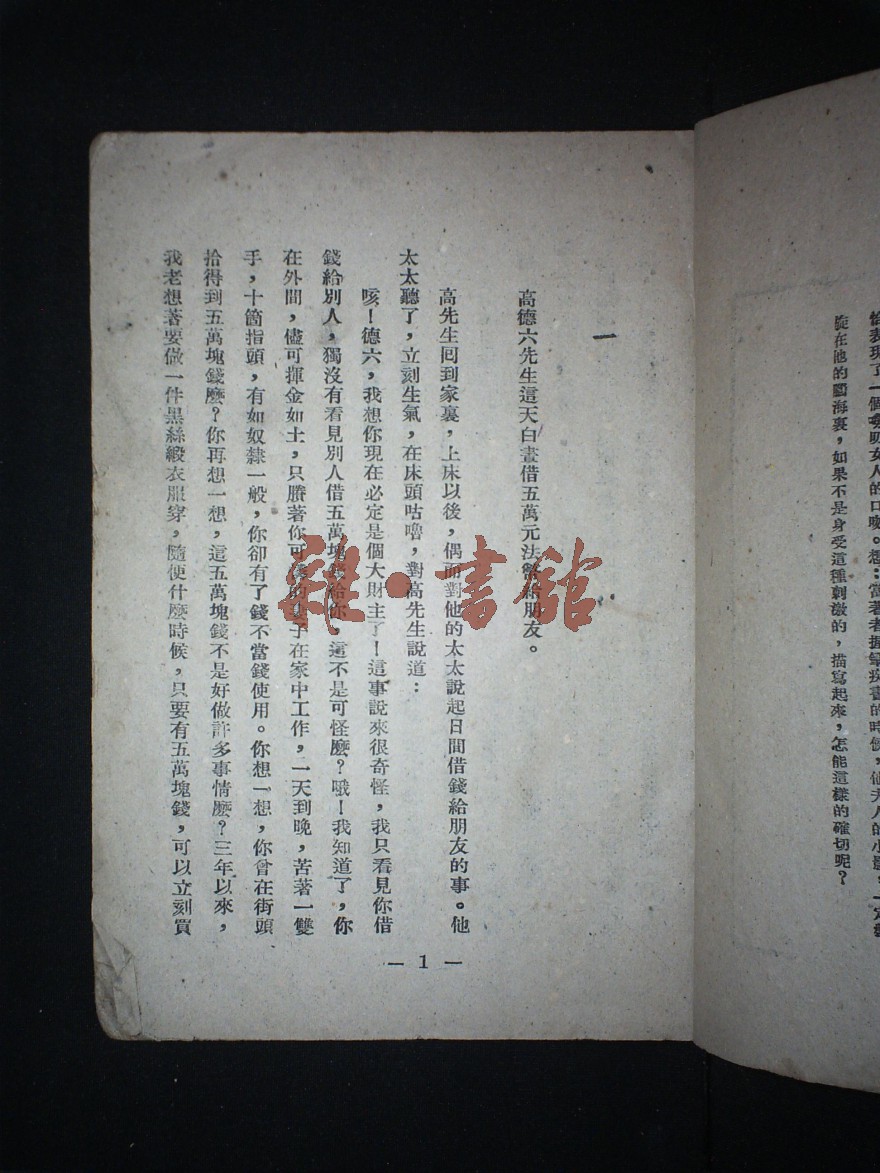 如果不是身受這種刺激的，描寫起來，怎能這樣的確切呢？
一
高德六先生這天白晝借五萬元法幣給朋友。
高先生囘到家裏，上床以後，偶而對他的太太說起日間借錢給朋友的事。他
太太聽了，立刻生氣，在床頭咕嚕，對高先生說道：
咳！德六，我想你現在必定是個大財主了！這事說來很奇怪，我只看見你借
錢給別人，獨沒有看見別人借五萬塊錢給你，這不是可怪麽？哦！我知道了，你
在外間，儘可揮金如土，只賸著你可憐的妻子在家中工作，一天到晚，苦著一雙
手，十箇指頭，有如奴隸一般，你卻有了錢不當錢使用。你想一想，你曾在街頭
拾得到五萬塊錢麽？你再想一想，這五萬塊錢不是好做許多事情麽？三年以來，
我老想著要做一件黑絲緞衣服穿，隨便什麽時候，只要有五萬塊錢，可以立刻買
— 1 —
雜·書館